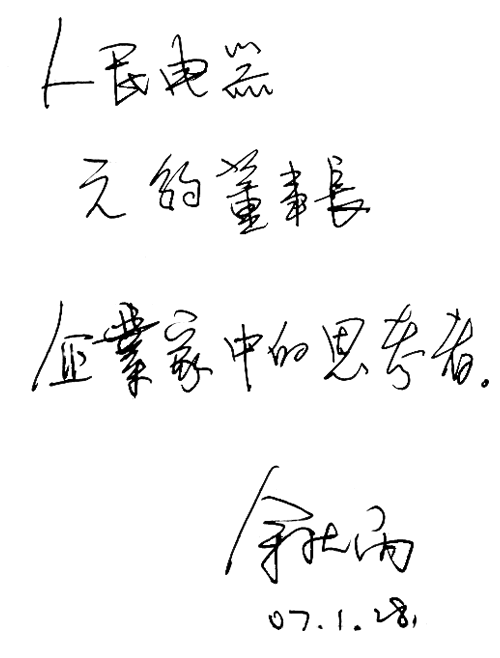 人民电器
元豹董事長
企業家中的思考者。
余秋雨
07.1.28.